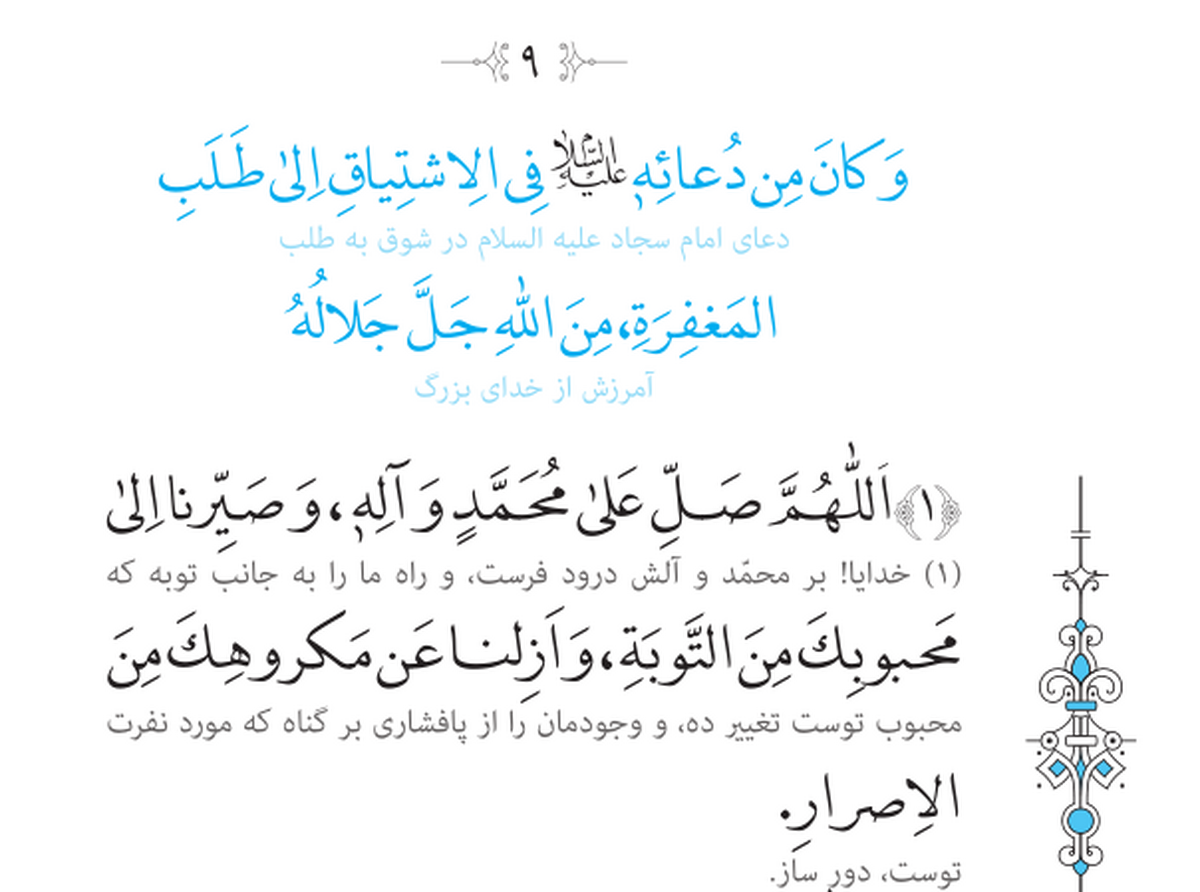 ۹
وَ كانَ مِن دُعائِهِ عليه السّلام فِى الِاشتِياقِ اِلىٰ طَلَبِ
دعای امام سجاد علیه السلام در شوق به طلب
المَغفِرَةِ، مِنَ اللّٰهِ جَلَّ جَلالُهُ
آمرزش از خدای بزرگ
﴿۱﴾ اَللّٰهُمَّ صَلِّ عَلىٰ مُحَمَّدٍ وَ آلِهِ، وَ صَيِّرنا اِلىٰ
(۱) خدایا! بر محمّد و آلش درود فرست، و راه ما را به جانب توبه که
مَحبوبِكَ مِنَ التَّوبَةِ، وَ اَزِلنا عَن مَكروهِكَ مِنَ
محبوب توست تغییر ده، و وجودمان را از پافشاری بر گناه که مورد نفرت
الاِصرارِ.
توست، دور ساز.